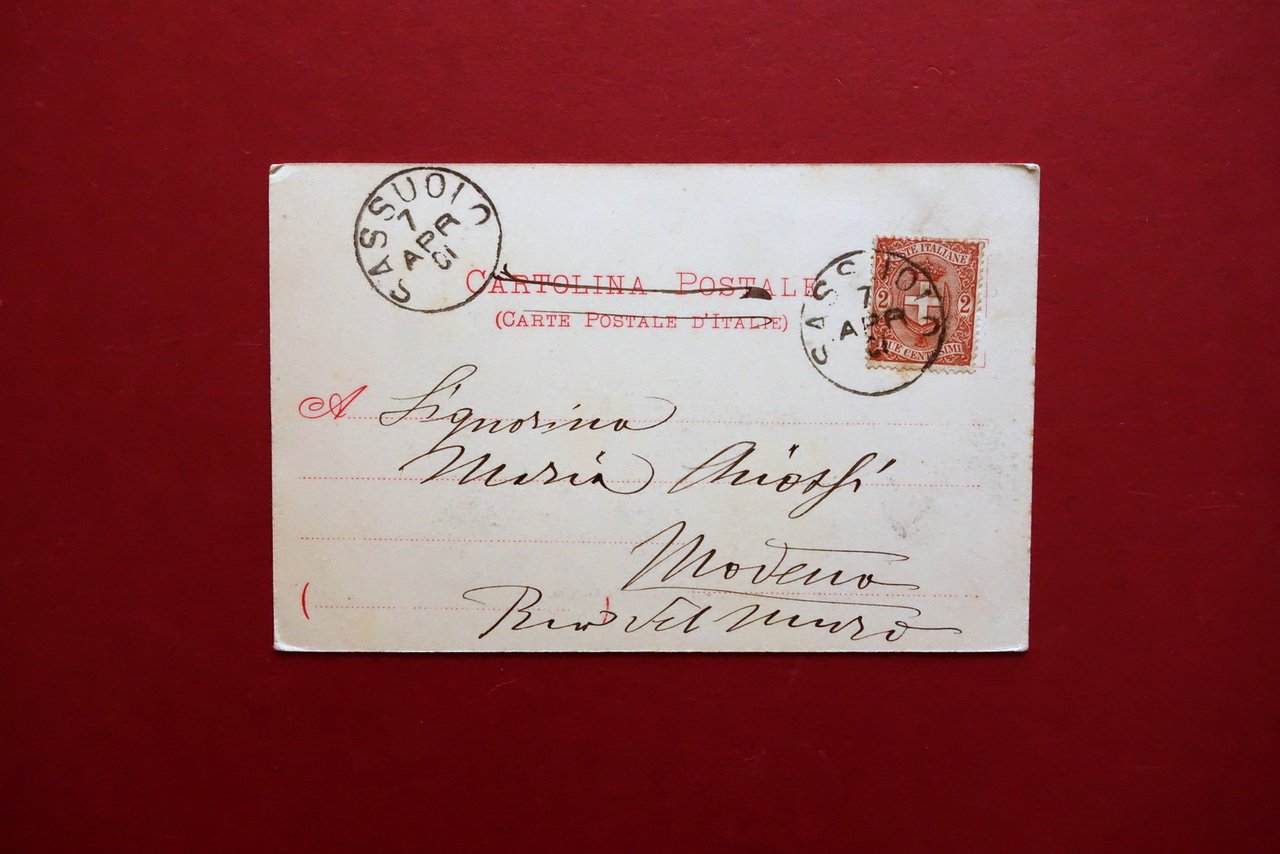 SASSUOLO
7
APR
01
POSTE ITALIANE
SASSUOLO
7
2 2
APR
01
DUE CENTESIMI
CARTOLINA POSTALE
(CARTE POSTALE D'ITALIE)
A Signorina
Maria
Modena
Rua del Muro